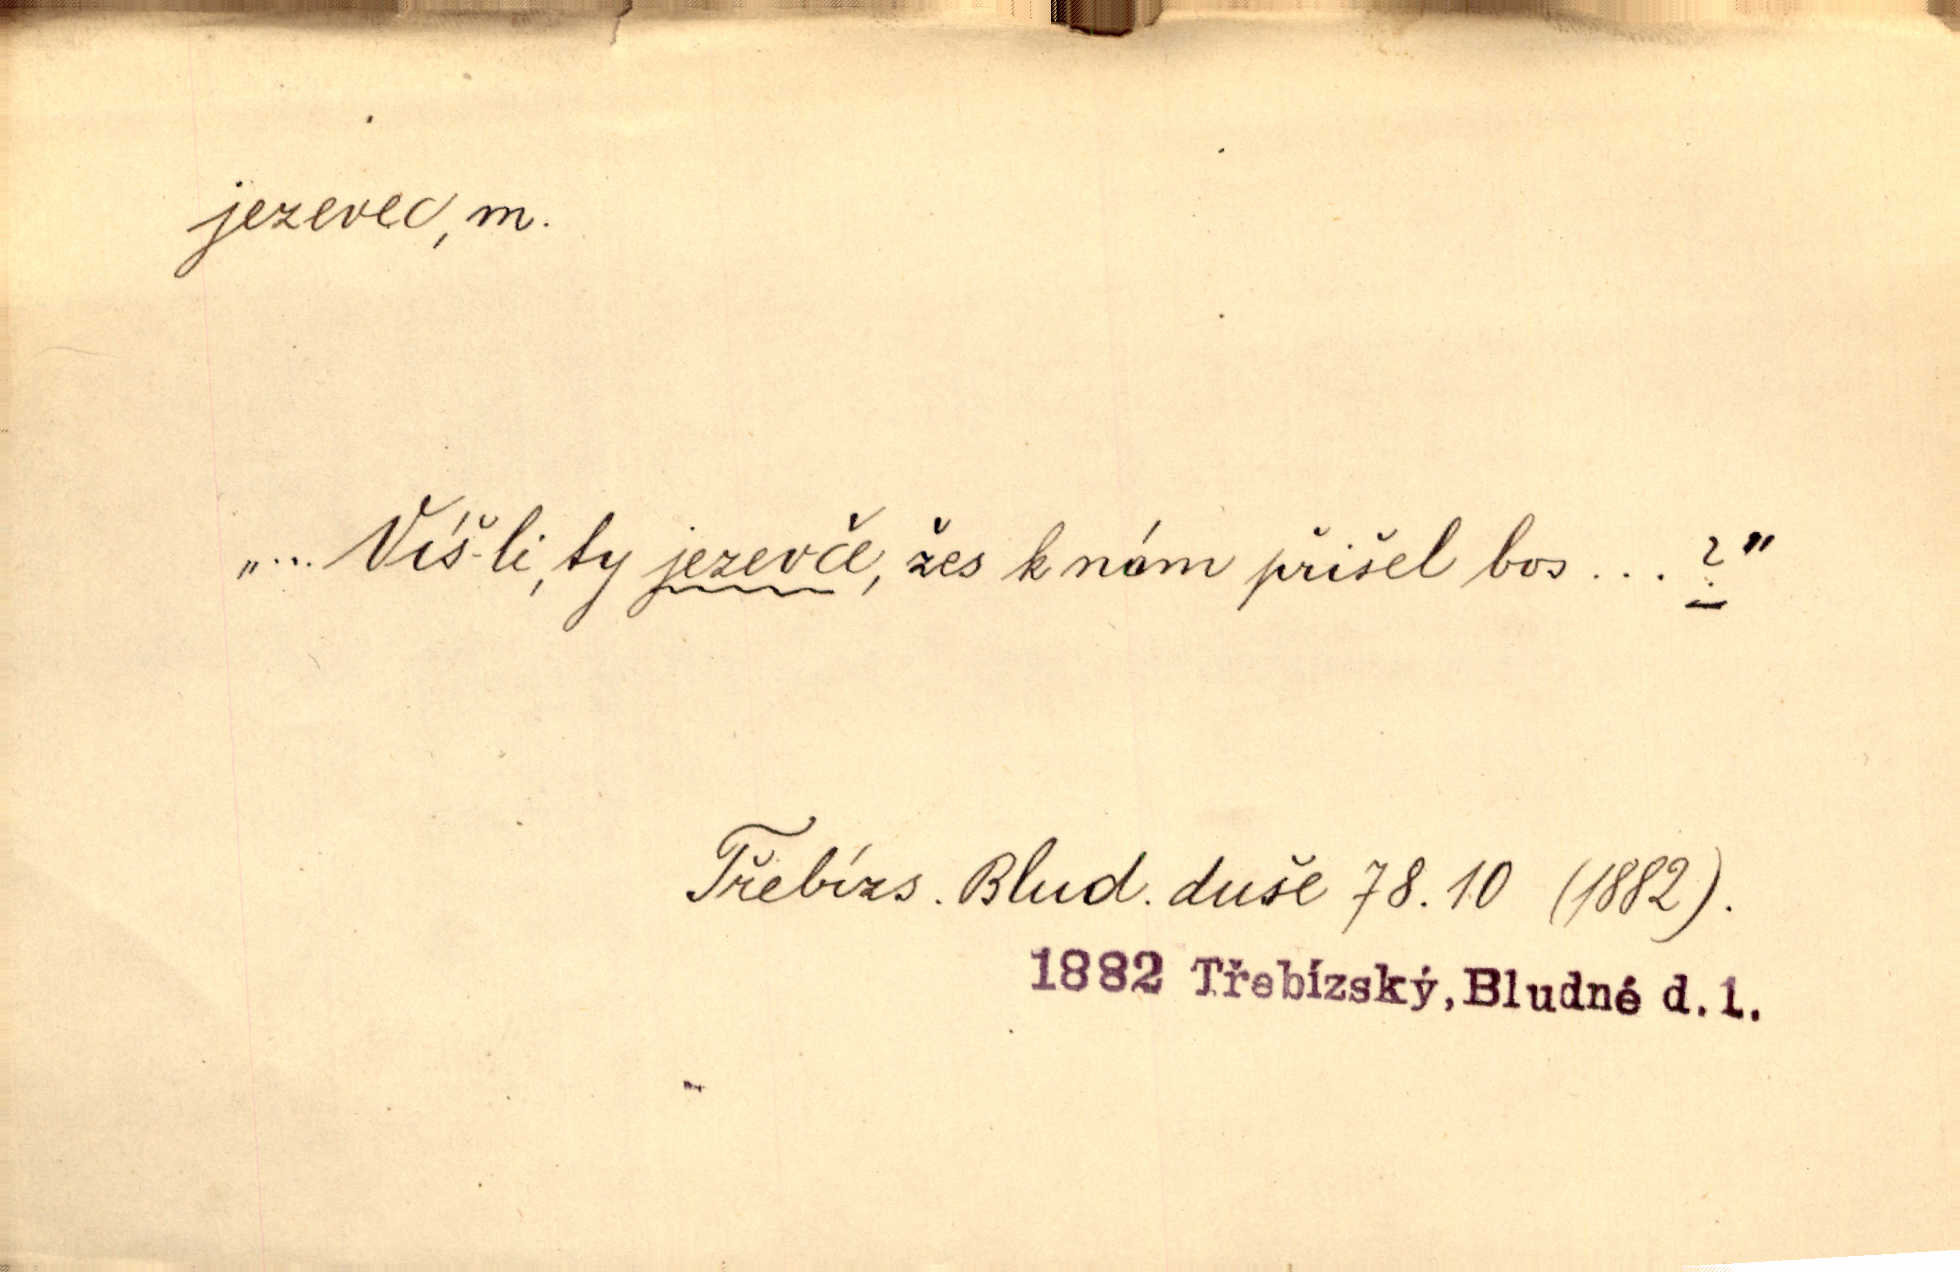 jezevec, m.
„... Víš-li, ty jezevče, žes k nám přišel bos ... ?"
Třebízs. Blud. duše 78.10 (1882).
1882 Třebízský, Bludné d. 1.